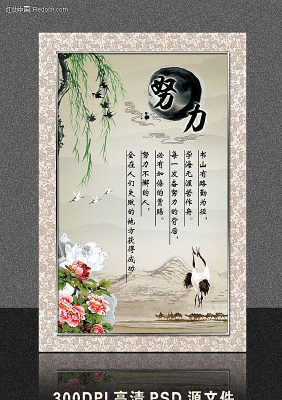 红动中国 Redocn.com
努力
书山有路勤为径，
学海无涯苦作舟。
每一发奋努力的背后，
必有加倍的赏赐。
努力不懈的人，
会在人们失败的地方获得成功。
300DPI 高清 PSD 源文件